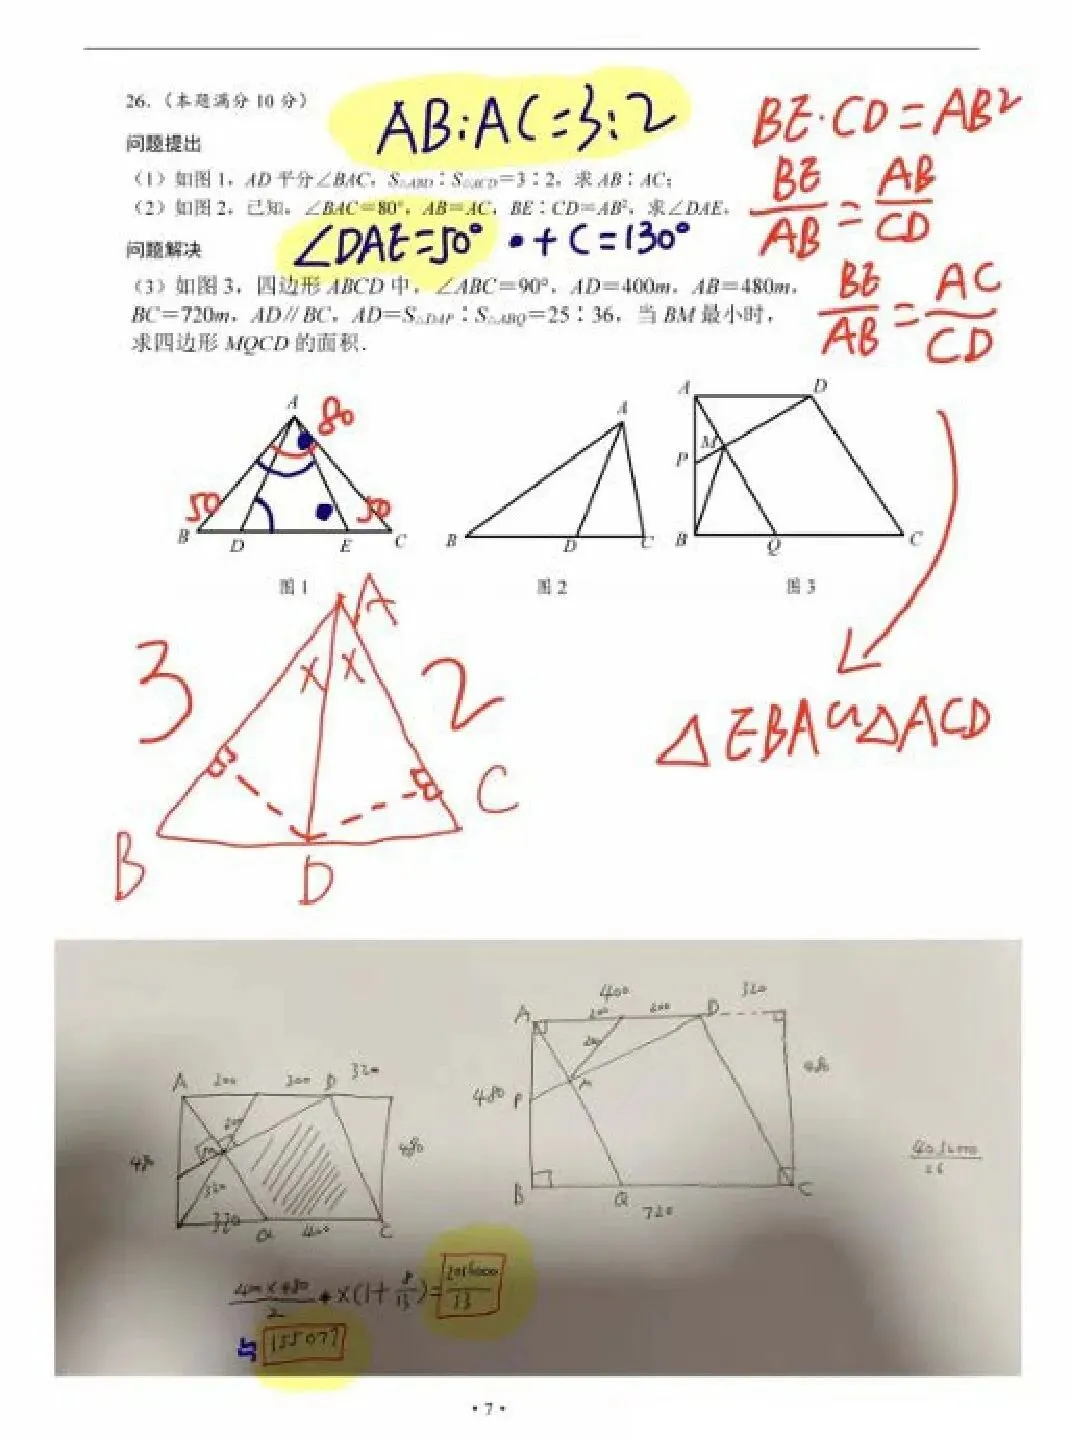 26.（本题满分 10 分）
AB:AC=3:2
BE·CD=AB²
问题提出
（1）如图 1，AD 平分∠BAC，S△ABD：S△ACD=3：2，求 AB：AC；
BE/AB=AB/CD
（2）如图 2，已知，∠BAC=80°，AB=AC，BE：CD=AB²，求∠DAE，
∠DAE=50° •+C=130°
问题解决
（3）如图 3，四边形 ABCD 中，∠ABC=90°，AD=400m，AB=480m，
BE/AB=AC/CD
BC=720m，AD∥BC，AD=S△DAP：S△ABQ=25：36，当 BM 最小时，
求四边形 MQCD 的面积．
A 80
50 50
B D E C
图 1
A
B D C
图 2
A D
M
P
B Q C
图 3
A
3 X X 2
B D C
△EBA∽△ACD
A 200 200 D 320
200
480 M 480
320
320 Q 400 C
400 320
A 200 200 D
200
480 P M 480
B Q C
720
400×480/2 ×(1+8/13)=2016000/13
≒ 155077
• 7 •